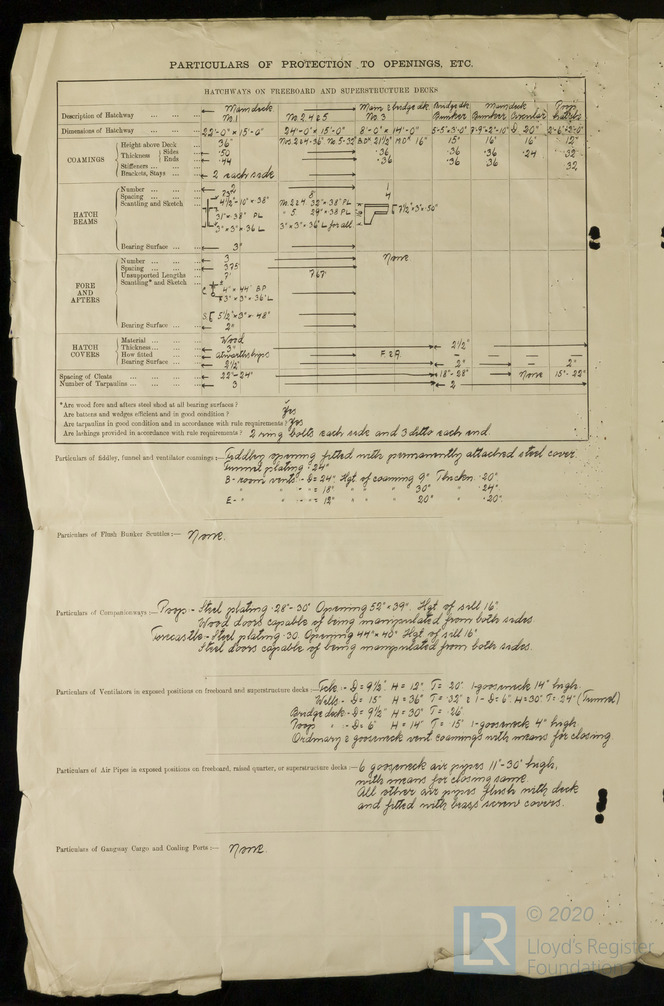 PARTICULARS OF PROTECTION TO OPENINGS, ETC.
HATCHWAYS ON FREEBOARD AND SUPERSTRUCTURE DECKS
Description of Hatchway ... ... ... Main deck No.1 No. 2 4 & 5 Main & bridge dk No. 3 Bridge dk Bunker Main deck Bunker Circular Poop hatches
Dimensions of Hatchway ... ... 22'-0" × 15'-0" 24'-0" × 15'-0" 8'-0" × 14'-0"
COAMINGS
Height above Deck 36" 15" 16" 16" 12"
Thickness Sides ·50 ·36 ·36 ·36 ·24 ·32
Ends ·44 ·36 ·36 ·36
Stiffeners ... ... ... ·32
Brackets, Stays ... ... 2 each side
HATCH BEAMS
Number ... ... ... 2 8 1
Spacing ... ... ... 4
Scantling and Sketch No. 2 & 4 32" × 38" PL 7½" × 3" × ·50"
31" × 38" PL 5 29" × 38" PL
3" × 3" × 36 L 3" × 3" × 36 L for all
Bearing Surface ... ... 3"
FORE AND AFTERS
Number ... ... ... 3 None
Spacing ... ... ... 3.75'
Unsupported Lengths 7' 7.67'
Scantling* and Sketch
3" × 3" × 36 L
S. [ 5½" × 3" × 48"
Bearing Surface ... ... 2"
HATCH COVERS
Material ... ... ... Wood
Thickness ... ... ... 3" 2½"
How fitted ... ... ... F. & A. – – –
Bearing Surface ... ... 2½" 2" 2"
Spacing of Cleats ... ... ... 22"-24" 18"-28" None 15"-22"
Number of Tarpaulins ... ... ... 3 2
*Are wood fore and afters steel shod at all bearing surfaces?
Are battens and wedges efficient and in good condition? Yes
Are tarpaulins in good condition and in accordance with rule requirements? Yes
Are lashings provided in accordance with rule requirements? 2 ring bolts each side and 3 ditto each end
Particulars of fiddley, funnel and ventilator coamings:— Fiddley opening fitted with permanently attached steel cover.
Funnel plating ·24"
B-room vents:- D = 24" Hgt of coaming 9" Thickn. ·20"
" " - = 18" " " " 30" " ·24"
E- " " - = 12" " " " 20" " ·20"
Particulars of Flush Bunker Scuttles:— None.
Particulars of Companionways:— Poop - Steel plating ·28"-30" Opening 52" × 39" Hgt of sill 16"
Wood doors capable of being manipulated from both sides.
Forecastle - Steel plating ·30 Opening 44" × 40" Hgt of sill 16"
Steel doors capable of being manipulated from both sides.
Particulars of Ventilators in exposed positions on freeboard and superstructure decks:— Fcle :- D = 9½" H = 12" T = ·20" 1-gooseneck 14" high.
Wells - D = 15" H = 36" T = ·32" & 1- D = 6" H = 30" T = ·24" (Tunnel)
Bridge deck - D = 9½" H = 30" T = ·26"
Poop " :- D = 6" H = 14" T = ·15" 1-gooseneck 4" high
Ordinary & gooseneck vent coamings with means for closing
Particulars of Air Pipes in exposed positions on freeboard, raised quarter, or superstructure decks:— 6 gooseneck air pipes 11"-30" high,
with means for closing same.
All other air pipes flush with deck
and fitted with brass screw covers.
Particulars of Gangway Cargo and Coaling Ports:— None.
© 2020
LR
Lloyd's Register
Foundation